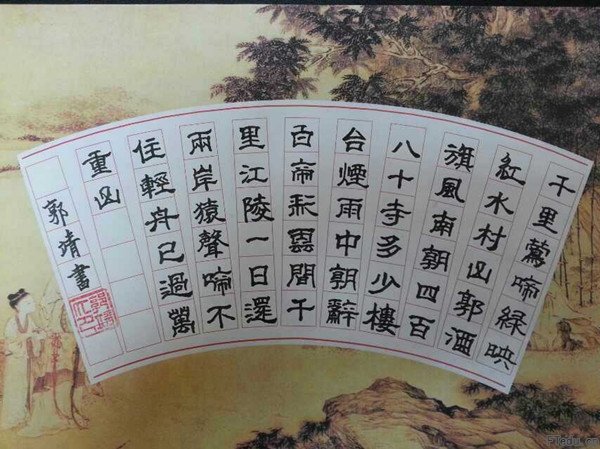 千里鶯啼緑映
紅水村山郭酒
旗風南朝四百
八十寺多少樓
台煙雨中朝辭
白帝彩雲間千
里江陵一日還
兩岸猿聲啼不
住輕舟已過萬
重山
郭靖書